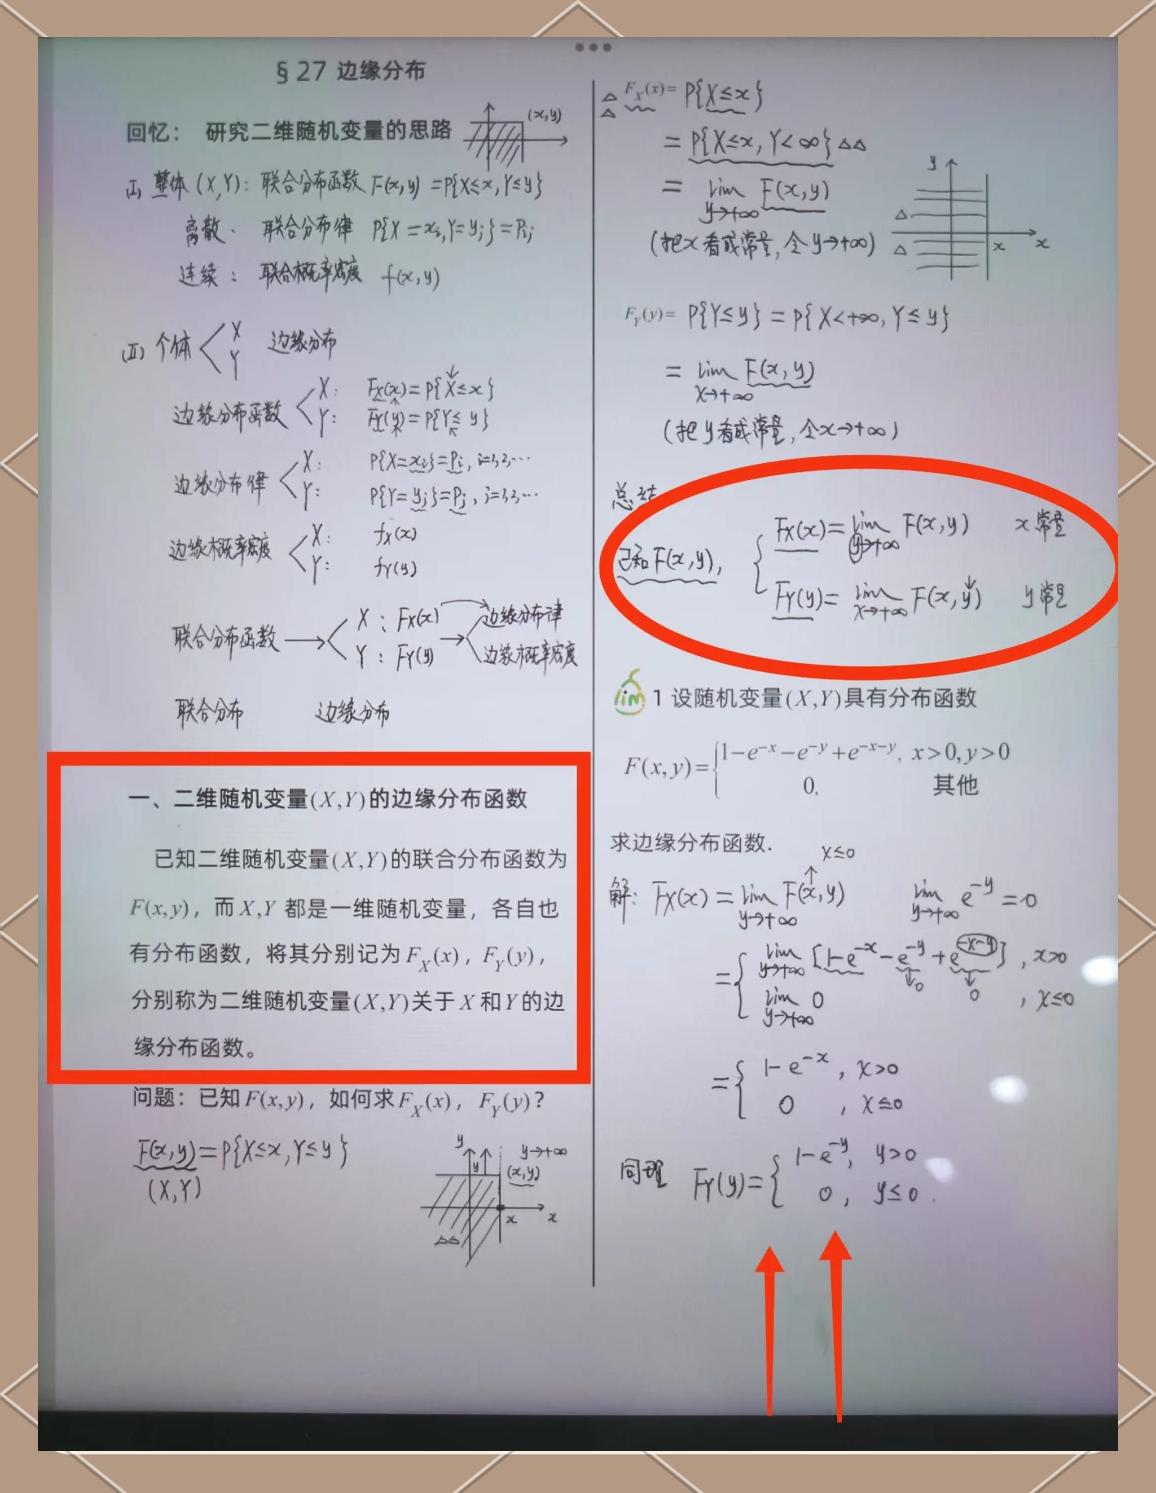 §27 边缘分布
回忆： 研究二维随机变量的思路
(x,y)
(I) 整体 (X,Y): 联合分布函数 F(x,y) =P{X≤x,Y≤y}
离散. 联合分布律 P{X=xi,Y=yj}=Pij
连续: 联合概率密度 f(x,y)
(II) 个体 X Y 边缘分布
边缘分布函数 X: FX(x)=P{X≤x}
Y: FY(y)=P{Y≤y}
边缘分布律 X: P{X=xi}=Pi, i=1,2,…
Y: P{Y=yj}=Pj, j=1,2,…
边缘概率密度 X: fX(x)
Y: fY(y)
联合分布函数→ X: FX(x) → 边缘分布律
Y: FY(y) 边缘概率密度
联合分布 边缘分布
一、二维随机变量(X,Y)的边缘分布函数
已知二维随机变量(X,Y)的联合分布函数为
F(x,y)，而X,Y 都是一维随机变量，各自也
有分布函数，将其分别记为FX(x)，FY(y)，
分别称为二维随机变量(X,Y)关于X和Y的边
缘分布函数。
问题：已知F(x,y)，如何求FX(x)，FY(y)？
F(x,y)=P{X≤x,Y≤y}
(X,Y)
y y y→+∞
(x,y)
x x
△△
△△ FX(x)= P{X≤x}
= P{X≤x,Y<∞} △△
= lim y→+∞ F(x,y)
(把x看成常量,令y→+∞)
y
△
△ x x
FY(y)= P{Y≤y}=P{X<+∞,Y≤y}
= lim x→+∞ F(x,y)
(把y看成常量,令x→+∞)
总结
已知F(x,y), { FX(x)=lim y→+∞ F(x,y) x常量
FY(y)=lim x→+∞ F(x,y) y常量
lim 1 设随机变量(X,Y)具有分布函数
F(x,y)={ 1−e^{−x}−e^{−y}+e^{−x−y}, x>0,y>0
0, 其他
求边缘分布函数.
x≤0
解: FX(x)=lim y→+∞ F(x,y) lim y→+∞ e^{-y}=0
={ lim y→+∞ [1-e^{-x}-e^{-y}+e^{-x-y}] , x>0
0 0
lim y→+∞ 0 , x≤0
={ 1-e^{-x}, x>0
0 , x≤0
同理 FY(y)={ 1-e^{-y}, y>0
0, y≤0.